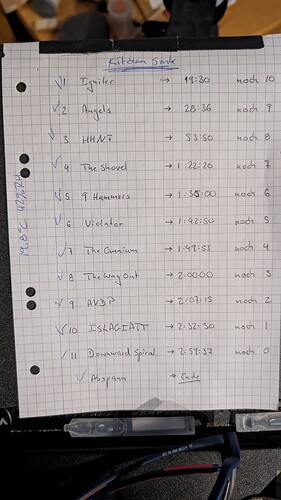 Kitchen Sink
1 Igniter → 19:30 noch 10
2 Angels → 28:36 noch 9
3 HHNT → 53:50 noch 8
4 The Shovel → 1:22:20 noch 7
5 9 Hammers → 1:35:00 noch 6
6 Violator → 1:42:50 noch 5
7 The Omnium → 1:49:55 noch 4
8 The Way Out → 2:00:00 noch 3
9 AVDP → 2:07:15 noch 2
10 ISLAGIATT → 2:32:30 noch 1
11 Downward Spiral → 2:59:37 noch 0
Abspann → Ende
19,8°C 42% RH